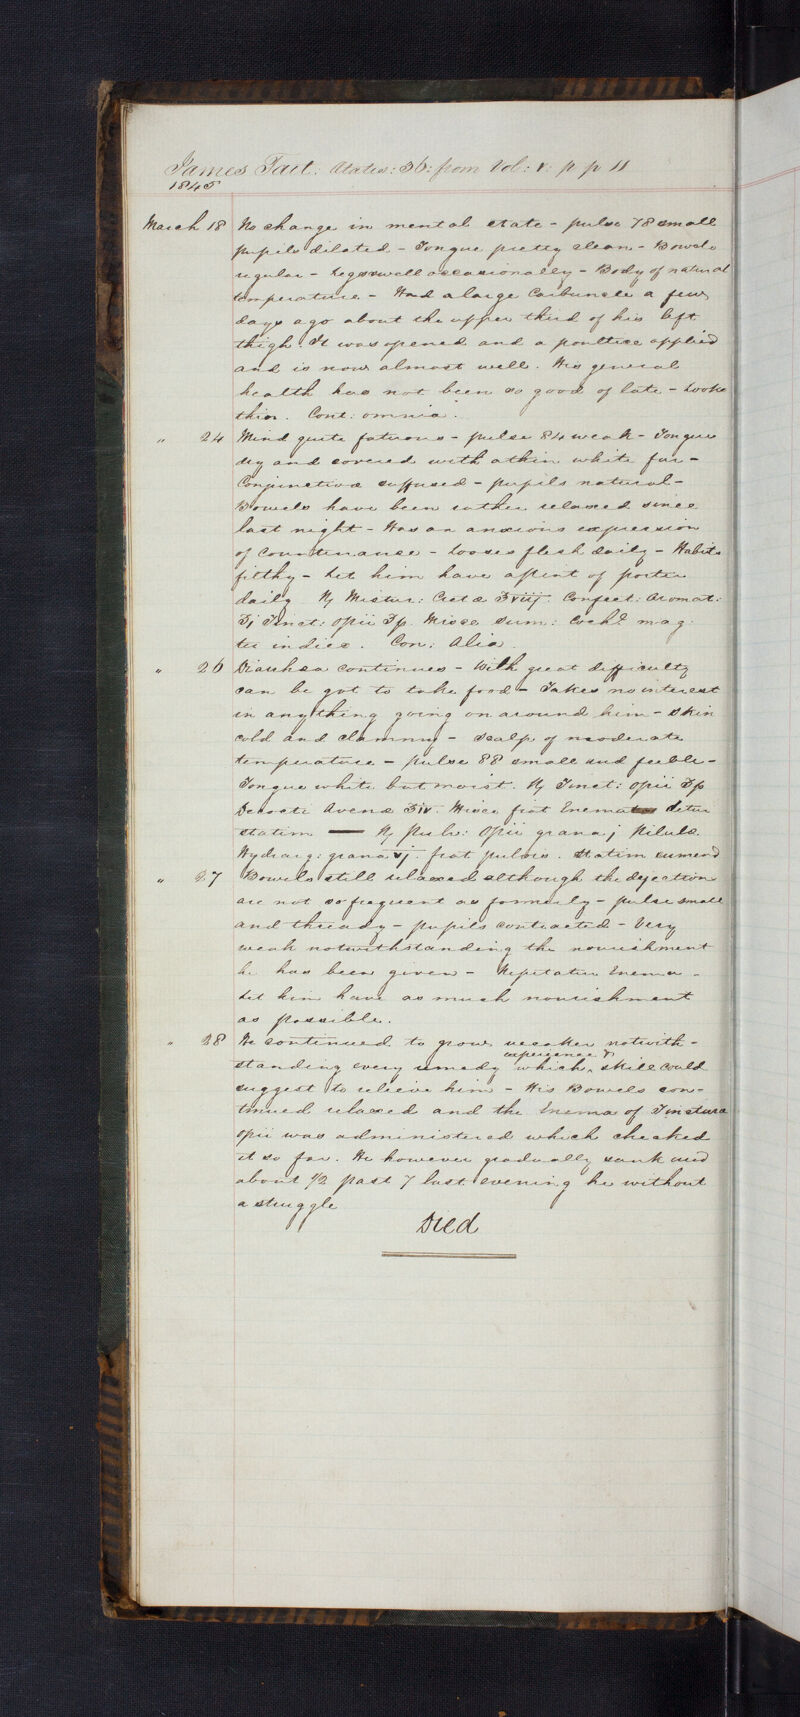 James Tait. Ætatis: 36: from Vol: V: p p 11
1845
March 18 No change in mental state - pulse 78 small
pupils dilated - Tongue pretty clean - Bowels
regular - Legs swell occasionally - Body of natural
temperature - Had a large Carbuncle a few
days ago about the upper third of his left
thigh. It was opened and a poultice applied
and is now almost well. His general
health has not been so good of late - Looks
thin. Cont: omnia.
" 24 Mind quite fatuous - pulse 84 weak - Tongue
dry and covered with a thin white fur -
Conjunctivæ suffused - pupils natural -
Bowels have been rather relaxed since
last night - Has an anxious expression
of Countenance - Looses flesh daily - Habits
filthy - Let him have a pint of porter
daily ℞ Mistur: Cretæ ℥viij. Confect: Aromat:
ʒj Tinct: Opii ʒſs. Misce sum: Cochl. mag:
ter indies. Con: Alia.
" 26 Diarrhea continues - With great difficulty
can be got to take food - Takes no interest
in anything going on around him - Skin
cold and clammy - Scalp of moderate
temperature - pulse 88 small and feeble -
Tongue white but moist. ℞ Tinct: Opii ʒſs
Decocti Avenæ ℥iv. Misce fiat Enema detur
statim — ℞ Pulv: Opii grana j Pilulæ
Hydrarg: grana vj. fiat pulvis. Statim sumend
" 27 Bowels still relaxed although the dejections
are not so frequent as formerly - pulse small
and thready - pupils contracted - Very
weak notwithstanding the nourishment
he has been given - Repetatur Enema -
Let him have as much nourishment
as possible.
" 28 He continued to grow weaker notwith-
standing every remedy which experience & skill could
suggest to relieve him - His Bowels con-
tinued relaxed and the Enema of Tinctura
Opii was administered which checked
it so far. He however gradually sunk and
about ½ past 7 last evening he without
a struggle
Died